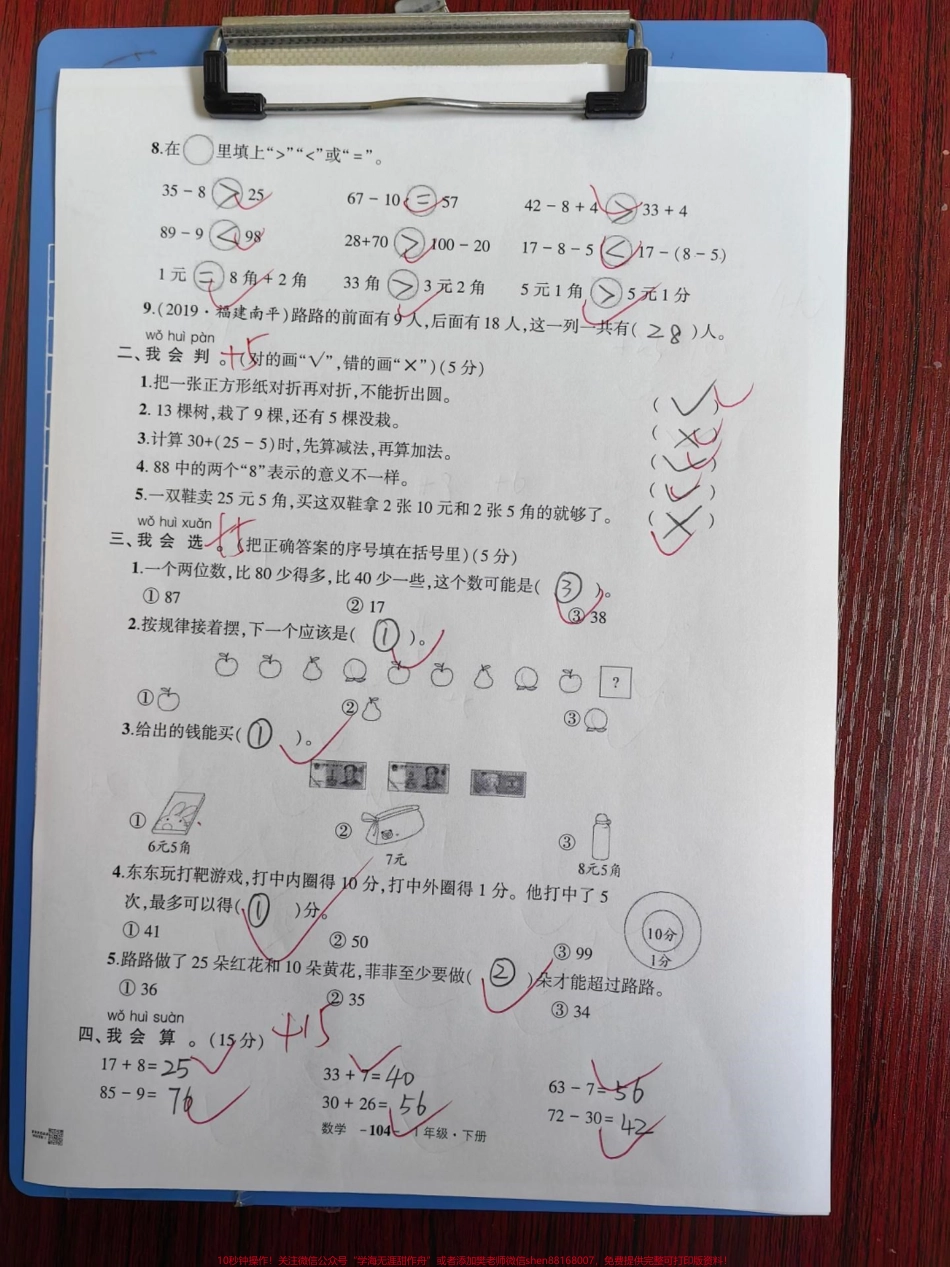 8.在○里填上“>”“<”或“=”。
35-8 > 25 67-10 = 57 42-8+4 > 33+4
89-9 < 98 28+70 > 100-20 17-8-5 < 17-(8-5)
1元 = 8角+2角 33角 > 3元2角 5元1角 > 5元1分
9.(2019·福建南平)路路的前面有9人,后面有18人,这一列一共有( 28 )人。
wǒ huì pàn
二、我会判。(对的画“√”,错的画“×”)(5分) +5
1.把一张正方形纸对折再对折,不能折出圆。 ( √ )
2. 13棵树,栽了9棵,还有5棵没栽。 ( × )
3.计算30+(25-5)时,先算减法,再算加法。 ( √ )
4. 88中的两个“8”表示的意义不一样。 ( √ )
5.一双鞋卖25元5角,买这双鞋拿2张10元和2张5角的就够了。 ( × )
wǒ huì xuǎn
三、我会选。(把正确答案的序号填在括号里)(5分) +5
1.一个两位数,比80少得多,比40少一些,这个数可能是( ③ )。
①87 ②17 ③38
2.按规律接着摆,下一个应该是( ① )。
?
① ② ③
3.给出的钱能买( ① )。
① ② ③
6元5角 7元 8元5角
4.东东玩打靶游戏,打中内圈得10分,打中外圈得1分。他打中了5
次,最多可以得( ① )分。
10分
1分
①41 ②50 ③99
5.路路做了25朵红花和10朵黄花,菲菲至少要做( ② )朵才能超过路路。
①36 ②35 ③34
wǒ huì suàn
四、我会算。(15分) +15
17+8=25 33+7=40 63-7=56
85-9=76 30+26=56 72-30=42
数学 -104- 1年级·下册
10秒钟操作！关注微信公众号“学海无涯甜作舟”或者添加樊老师微信shen88168007，免费提供完整可打印版资料！